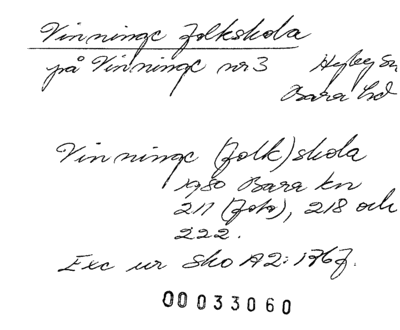 Vinninge folkskola
på Vinninge nr 3 Hyby sn
Bara hd
Vinninge (folk)skola
1980 Bara kn
217 (foto), 218 och
222.
Exc ur Sko A2:1967.
00033060